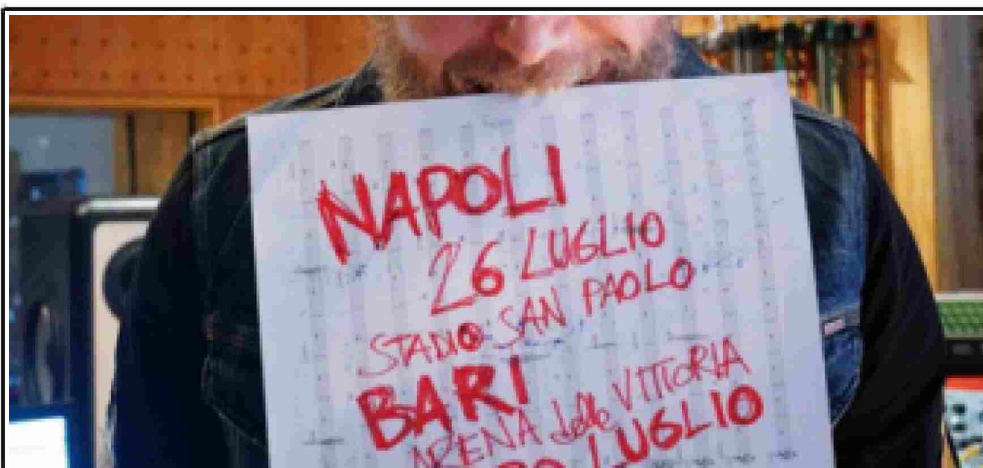 NAPOLI
26 LUGLIO
STADIO SAN PAOLO
BARI
ARENA delle VITTORIA
LUGLIO